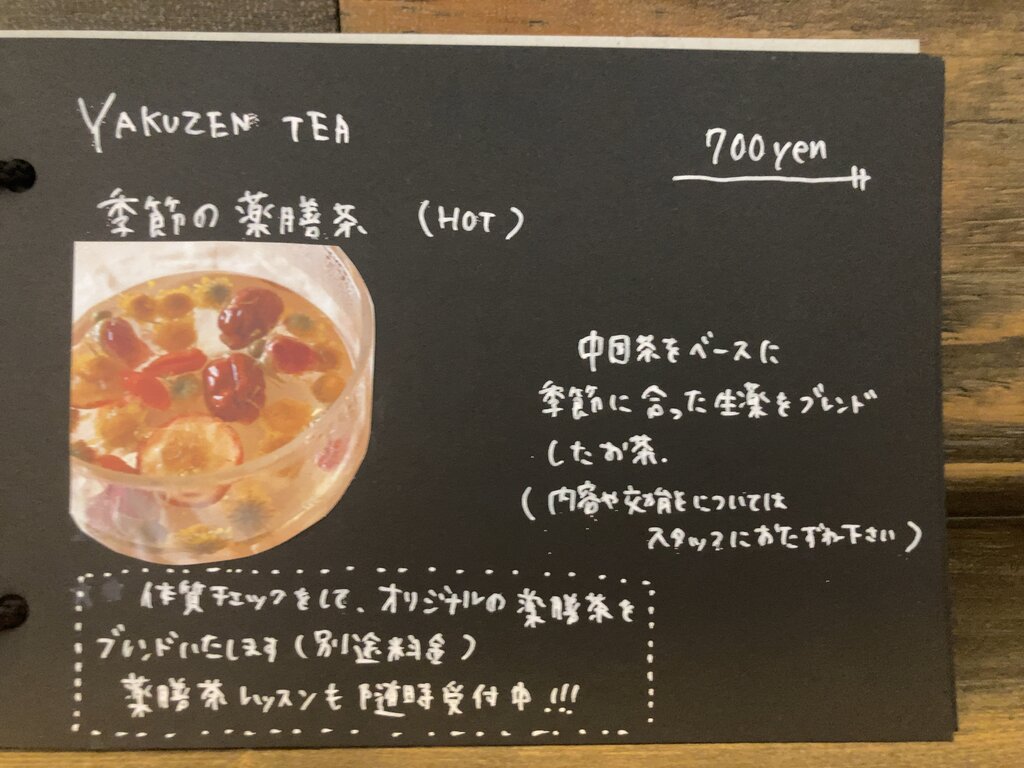 YAKUZEN TEA
700yen
季節の薬膳茶 (HOT)
中国茶をベースに
季節に合った生薬をブレンド
したお茶.
(内容や効能については
スタッフにおたずね下さい)
体質チェックをして、オリジナルの薬膳茶を
ブレンドいたします(別途料金)
薬膳茶レッスンも随時受付中!!!